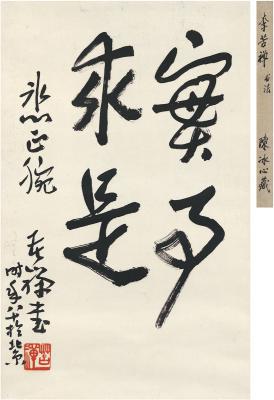 實事
求是
冰心正腕
苦禪書
時年八十於北京
李苦禪 書法 陳冰心藏